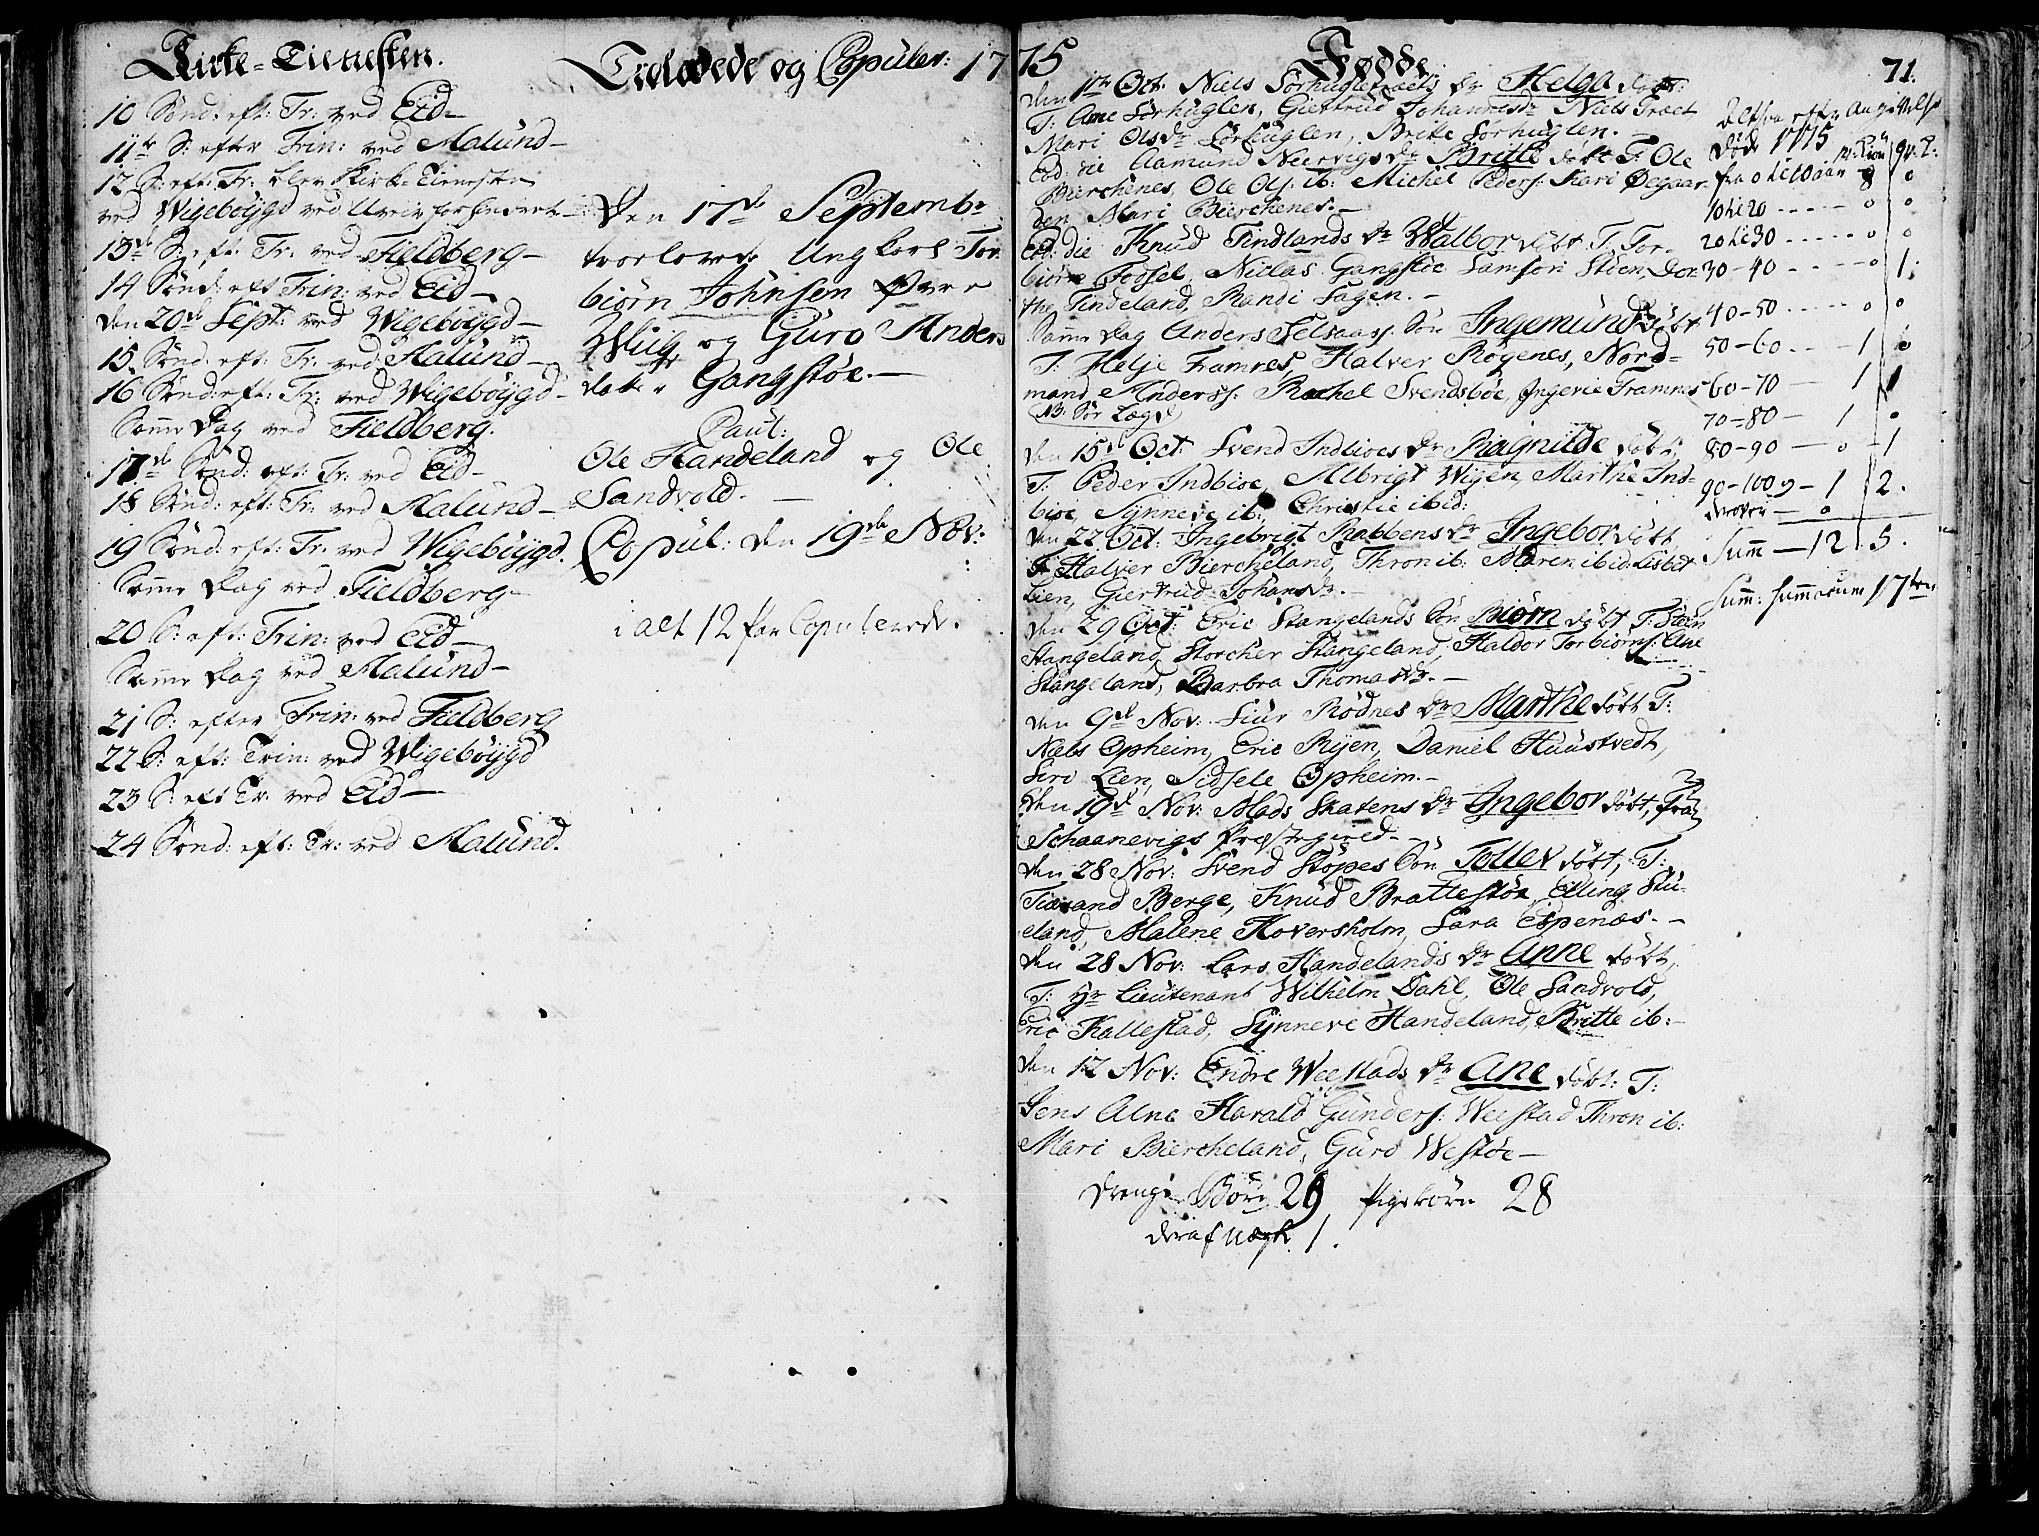 Kirke-Tienesten.
10 Sønd: eft: Tr: ved Eid-
11te S: efter Trin: ved Aalund-
12 S: eft: Tr: blev Kirke-Tienesten
ved Wigebøygd ved
13de S: eft: Tr: ved Fieldberg-
14 Sønd: eft Trin: ved Eid-
den 20de Sept: ved Wigebøygd-
15 Sønd: eft: Tr: ved Aalund-
16 Sønd: eft: Tr: ved Wigebøygd-
Samme Dag ved Fieldberg.
17de Sønd: eft: Tr: ved Eid-
18 Sønd: eft: Tr: ved Aalund-
19 Sønd: eft: Tr: ved Wigebøygd.
Samme Dag ved Fieldberg-
20 S: eft: Trin: ved Eid-
Samme Dag ved Aalund-
21 S: efter Trin: ved Fieldberg
22 S: eft: Trin: ved Wigebøygd
23 S: eft Tr: ved Eid-
24 Sønd: eft: Tr: ved Aalund.
Trolovede og Copuler: 1775
Den 17de Septembr
troelovede Ungkarl Tor
biørn Johnsen Øvre
Wiig og Guro Anders
datter Gangstøe.-
Paul:
Ole Handeland og Ole
Sandvold.-
Copul: den 19de Nov:
i alt 12 Par Copulerede.
Fødde.
71.
den 1te Oct: Niels Sørhugletræets Dr Helga døbt:
T: Arne Sørhuglen, Giertrud Johannesdr Niels Træet
Mari Olsdr Sørhuglen, Brite Sørhuglen.-
Eod: die Aamund Neervigs Dr Britte døbt T: Ole
Bierchenes, Ole Ols: ib: Michel Peders: Kari Øegaar-
den, Mari Bierchenes.-
Eod: die Knud Tindlands Dr Walbor døbt T: Tor-
biørn Fossel, Niclas Gangstøe Samson Støen, Dor-
the Tindeland, Randi Hagen.-
Samme Dag Anders Felsaas: Søn Ingemund døbt
T: Helje Framnes, Halver Røgenes, Nord-
mand Anderss: Rachel Svendsbøe, Ingerie Framnes
NB: Sør Lægd
den 15de Oct: Svend Indbioes Dr Ragnilde døbt,
T: Peder Indbioe, Albrigt Wigen, Marthe Ind-
bioe, Synneve ib:, Christie ibid:
den 22 Oct: Ingebrigt Rabbens Dr Ingebor døbt
T: Halver Biercheland, Thron ib: Maren ibid: Lisbet
Lien, Giertrud Johansdr.-
den 29 Oct: Eric Stangelands Søn Biørn døbt T: Steen
Stangeland, Storcher Stangeland, Haldor Torbiørns: Ane
Stangeland, Barbra Thomasdr.-
den 9de Nov: Siur Rødnes Dr Marthe døbt T:
Niels Opheim, Eric Ryen, Daniel Huustvedt,
Siri Lien, Sidsele Opheim.-
Den 19de Nov: Mads Skatens Dr Ingebor døbt, fra
Schaanevigs Præstegield.-
den 28 Nov: Svend Støpes Søn Tollev døbt, T:
Tiærand Berge, Knud Brattestøe, Elling Stu-
eland, Malene Hoversholm, Sara Espenæs.-
den 28 Nov: Lars Handelands Dr Anne døbt,
T: Hr Lieutenant Wilhelm Dahl, Ole Sandvold,
Eric Kallestad, Synneve Handeland, Britte ib:-
den 12 Nov: Endre Weestads Dr Ane døbt: T:
Jens Alne Harald Gunders: Weestad Thron ib:
Mari Biercheland, Guro Westøe-
Drenge Børn 29 Pigebørn 28
deraf uægte 1.
Døde 1775
fra 0 til 10 aar - 8 0
10 til 20 - - - - 0 0
20 til 30 - - - - 0 0
30 - 40 - - - - 0 1.
40 - 50 - - - - 0 0
50 - 60 - - - 1 0
60 - 70 - 1 1
70 - 80 - 1 0
80 - 90 - 0 - 1
90 - 100 - 1 2.
derover - 0
Summ - 12 5.
Summ: summarum 17ten